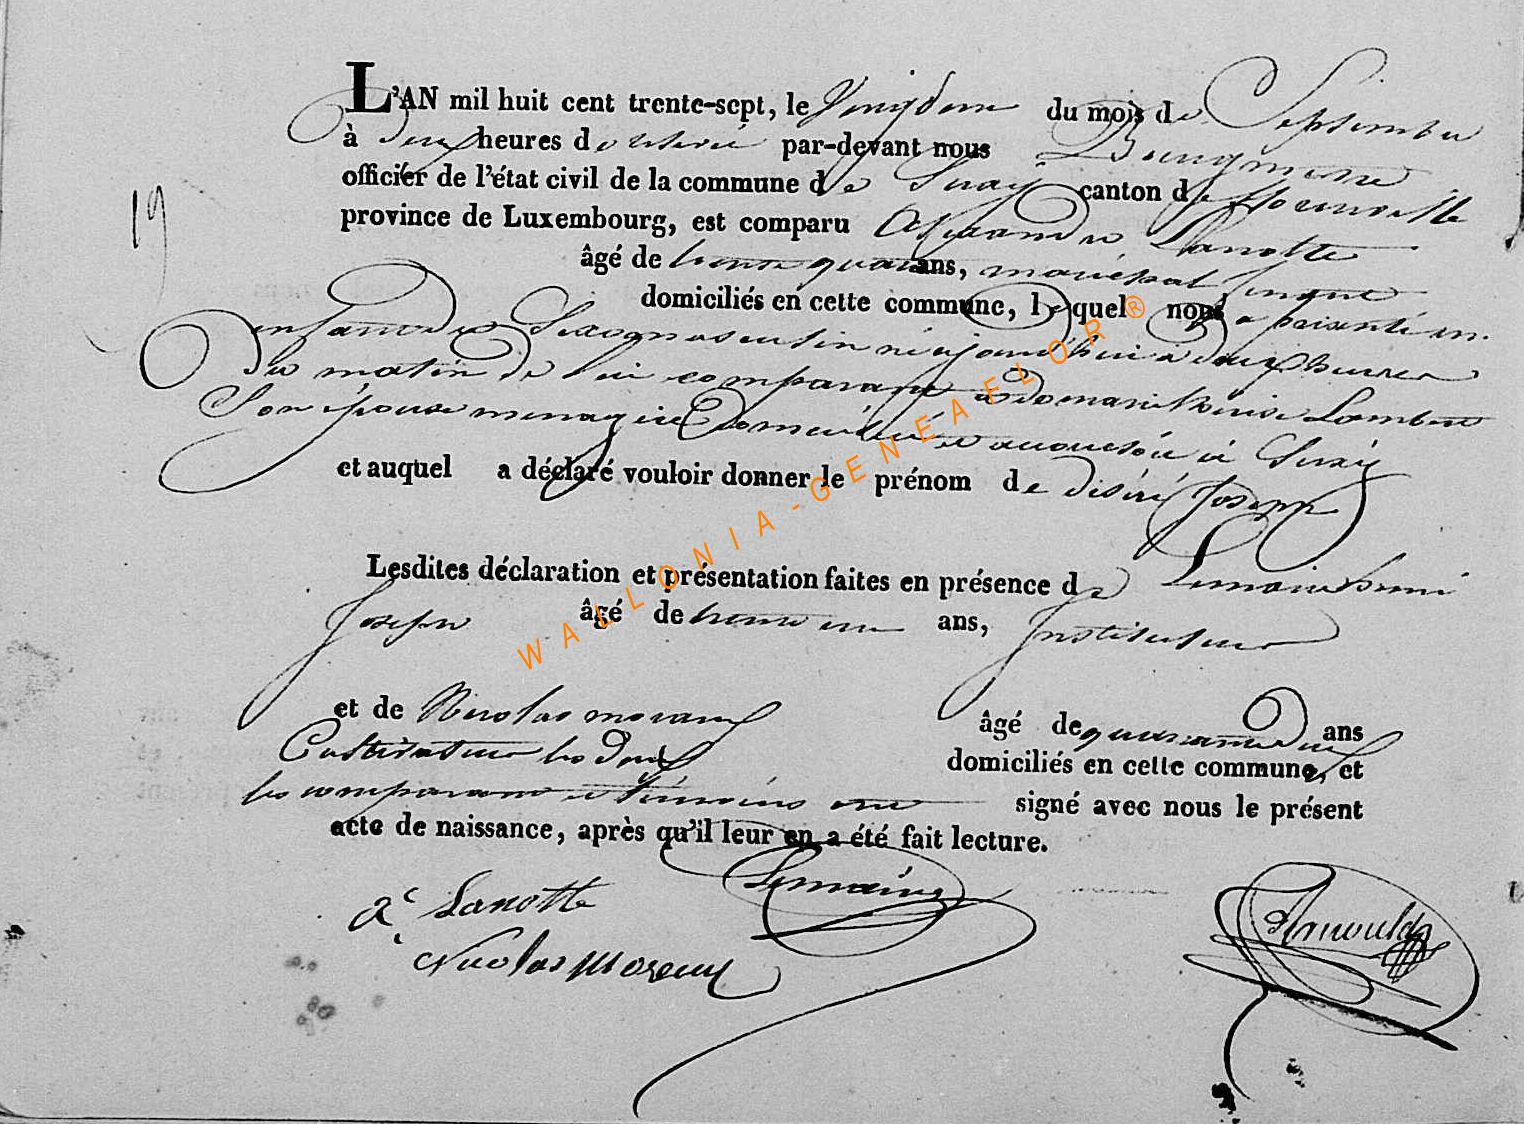 19
L'AN mil huit cent trente-sept, le vingt deux du mois de Septembre
à deux heures de relevée par-devant nous Bourgmestre
officier de l'état civil de la commune de Suxy canton de florenville
province de Luxembourg, est comparu Alexandre Lanotte
âgé de trente quatre ans, maréchal ferrant
domiciliés en cette commune, lequel nous a présenté un
enfant du Sexe masculin né aujourd'hui à deux heures
du matin de lui comparant et de marie Louise Lambert
Son épouse menagère Domiciliée avec lui à Suxy
et auquel a déclaré vouloir donner le prénom de désiré Joseph
Lesdites déclaration et présentation faites en présence de Lemaire henri
Joseph âgé de trente un ans, Instituteur
et de Nicolas moreaux âgé de quarante deux ans
Cultivateur les Deux domiciliés en cette commune, et
les comparant et témoins ont signé avec nous le présent
acte de naissance, après qu'il leur en a été fait lecture.
Lemaire
a Lanotte
Arnould
Nicolas Moreaux
WALLONIA-GENEAFLOR®